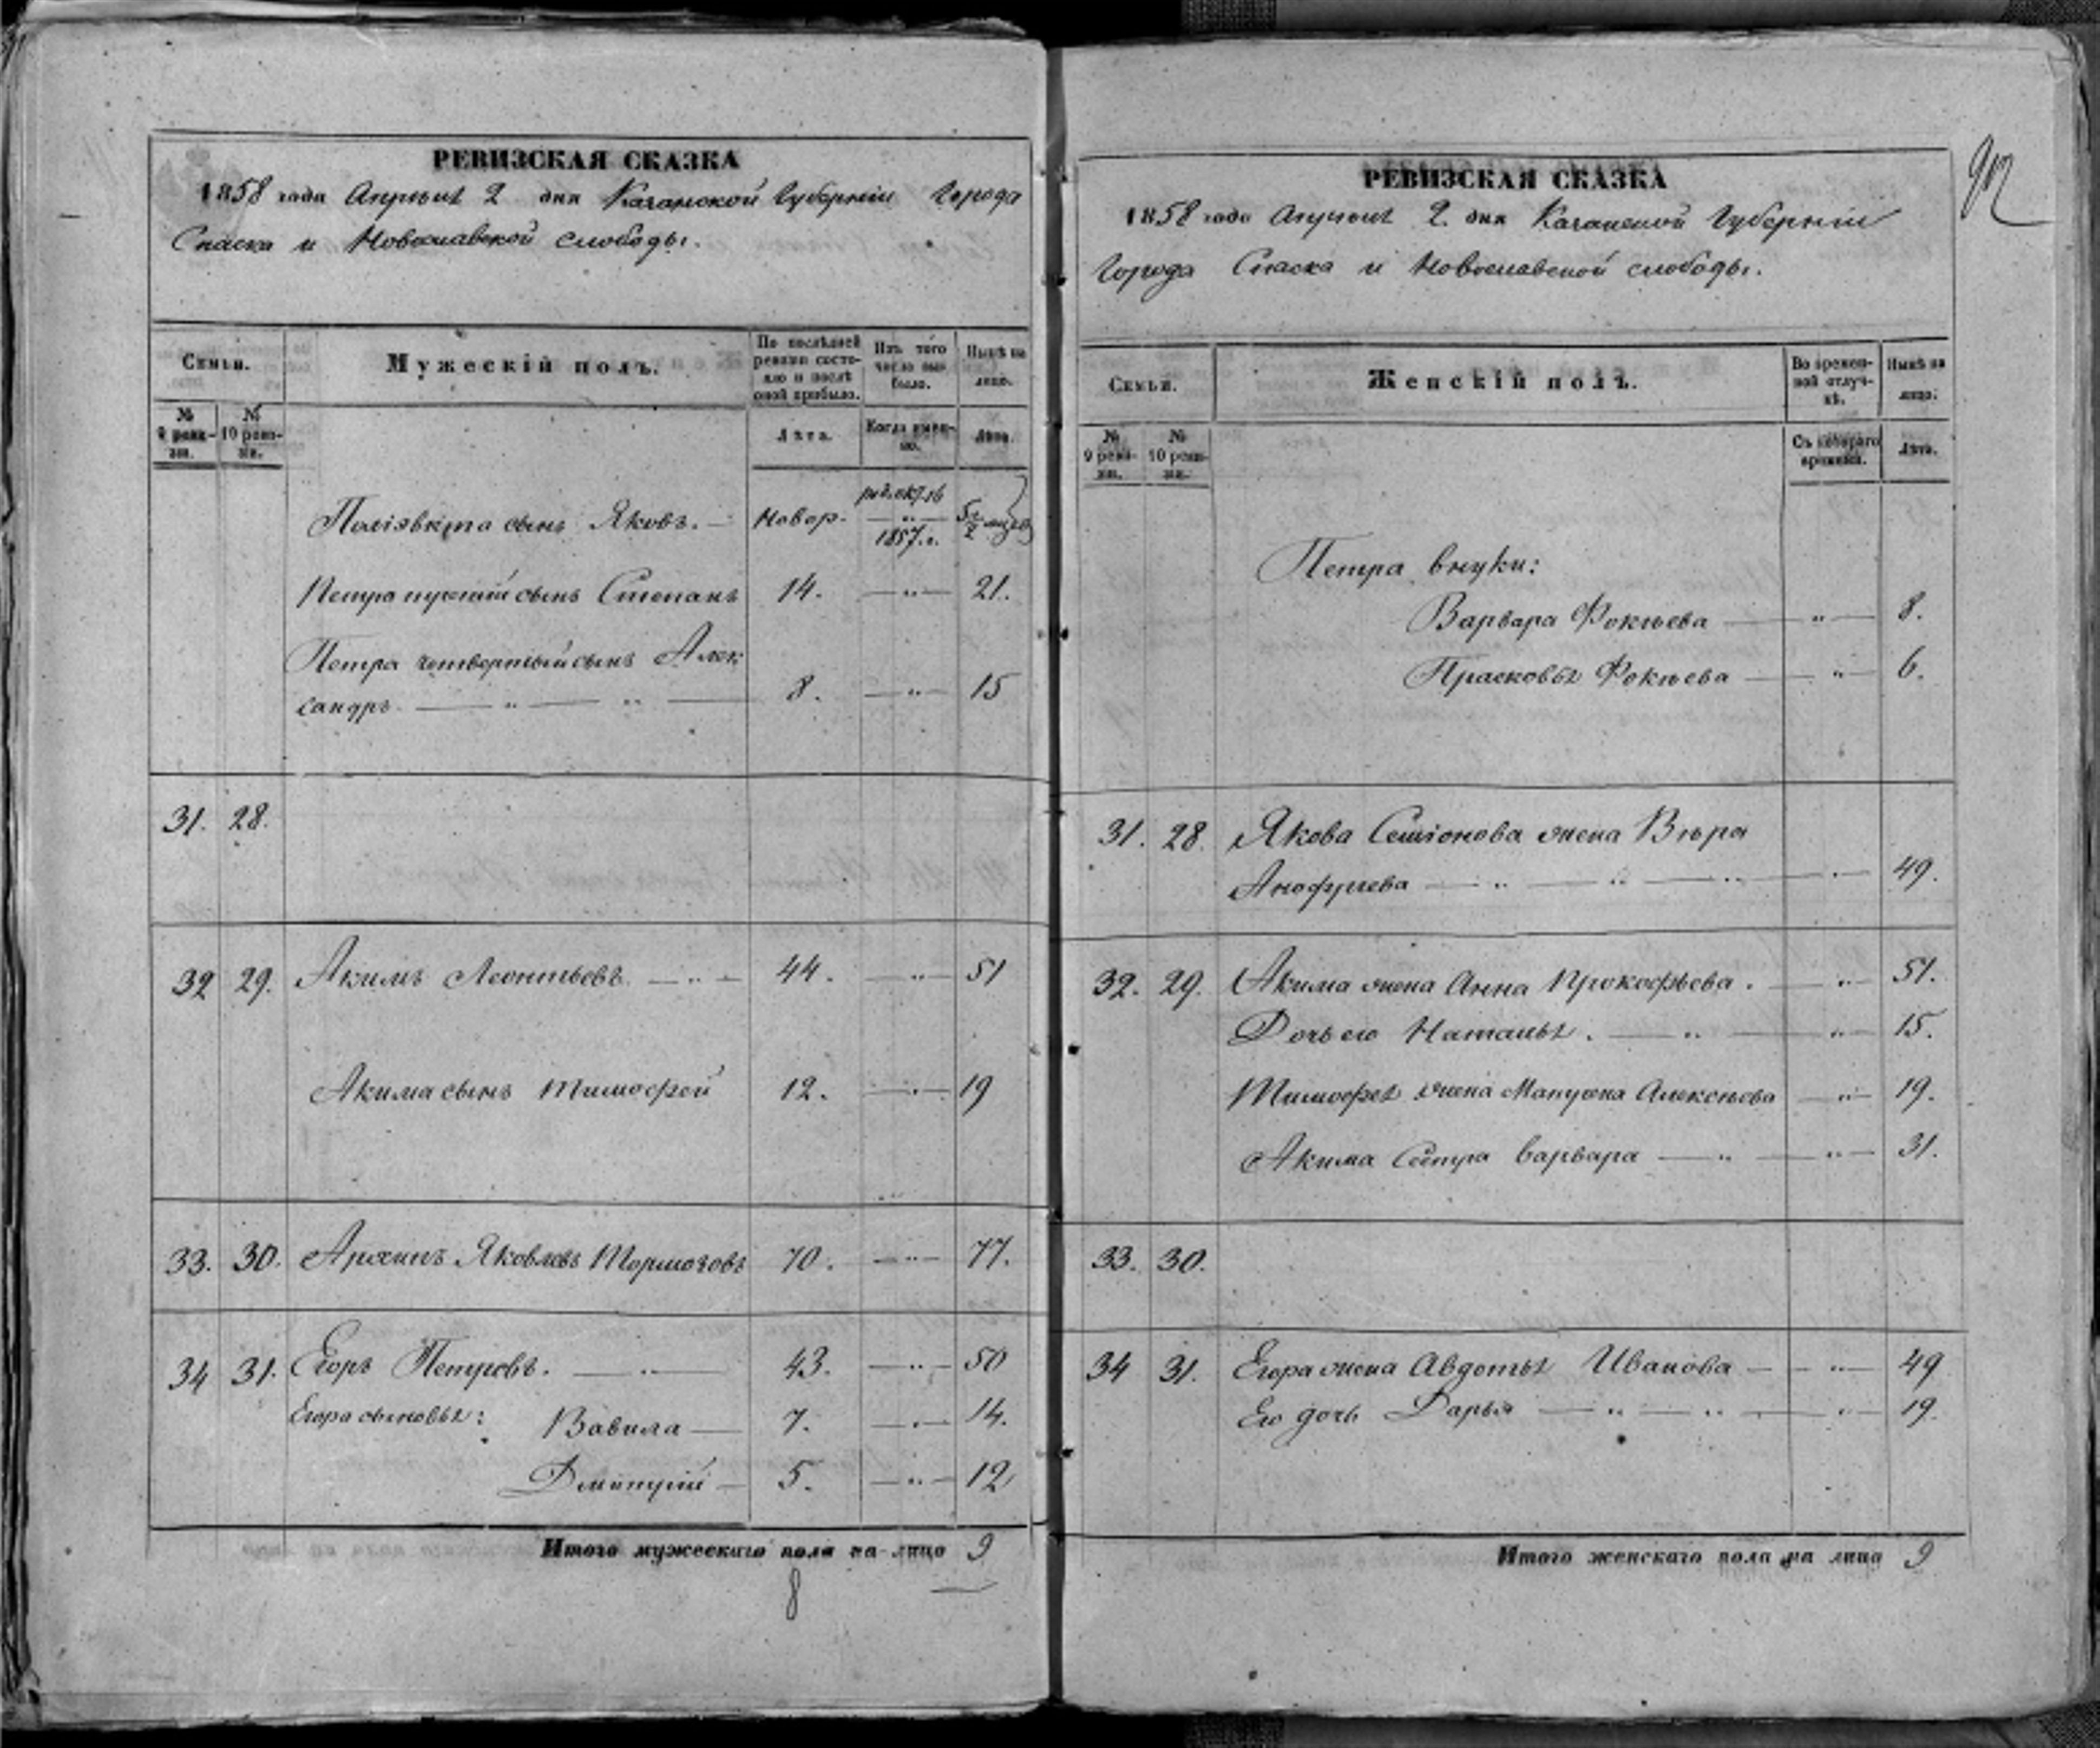 РЕВИЗСКАЯ СКАЗКА
1858 года Апрѣля 2 дня Казанской Губерніи Города
Спаска и слободы.
Семьи.
Мужескій полъ.
По послѣдней ревизіи состояло и послѣ оной прибыло.
Изъ того числа выбыло.
Нынѣ на лицо.
№ 9 ревизіи.
№ 10 ревизіи.
Лѣта.
Когда именно.
Лѣта.
сынъ Яковъ. — Новор. 1857.г. 5½
Петра третій сынъ Степанъ 14. — „ — 21.
Петра четвертый сынъ Алек
сандръ. — „ — „ — 8. — „ — 15
31. 28.
32 29. Акимъ Леонтьевъ. — „ — 44. — „ — 51
Акима сынъ Тимофей 12. — „ — 19
33. 30. Яковлевъ 70. — „ — 77.
34 31. Егоръ Петровъ. — „ — 43. — „ — 50
Егора сыновья: Вавила — 7. — „ — 14.
Дмитрій — 5. — „ — 12
Итого мужескаго пола на-лицо 9
8
РЕВИЗСКАЯ СКАЗКА
1858 года Апрѣля 2 дня Казанской Губерніи
Города Спаска и слободы.
Семьи.
Женскій полъ.
Во временной отлучкѣ.
Нынѣ на лицо.
№ 9 ревизіи.
№ 10 ревизіи.
Съ котораго времени.
Лѣта.
Петра внуки:
Варвара Фокѣева — „ — 8.
Прасковья Фокѣева — „ — 6.
31. 28. Якова Семіонова жена Вѣра
— „ — „ — „ — 49.
32. 29. Акима жена Анна Прокофьева. — „ — 51.
Дочь его Наталья. — „ — „ — 15.
Тимофея жена Алексѣева — „ — 19.
Акима Сестра Варвара — „ — „ — 31.
33. 30.
34 31. Егора жена Авдотья Иванова — „ — 49
Его дочь Дарья — „ — „ — „ — 19.
Итого женскаго пола на лицо 9